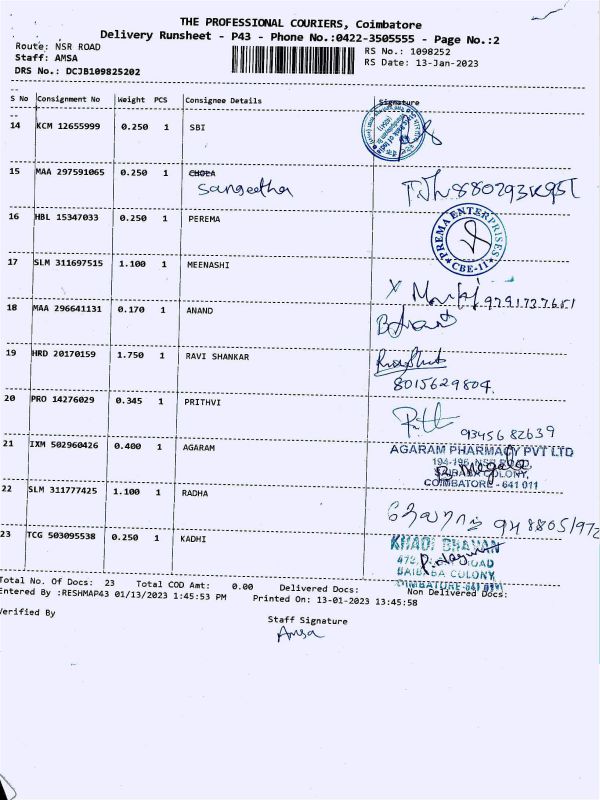 THE PROFESSIONAL COURIERS, Coimbatore
Delivery Runsheet - P43 - Phone No.:0422-3505555 - Page No.:2
Route: NSR ROAD RS No.: 1098252
Staff: AMSA RS Date: 13-Jan-2023
DRS No.: DCJB109825202
S No Consignment No Weight PCS Consignee Details Signature
14 KCM 12655999 0.250 1 SBI
15 MAA 297591065 0.250 1 CHOLA
Sangeetha
16 HBL 15347033 0.250 1 PEREMA
PREMA ENTERPRISES
CBE-11
17 SLM 311697515 1.100 1 MEENASHI
9791737651
18 MAA 296641131 0.170 1 ANAND
19 HRD 20170159 1.750 1 RAVI SHANKAR
8015629804
20 PRO 14276029 0.345 1 PRITHVI
9345682639
21 IXM 502960426 0.400 1 AGARAM
AGARAM PHARMACY PVT LTD
COIMBATORE - 641 011
22 SLM 311777425 1.100 1 RADHA
23 TCG 503095538 0.250 1 KADHI
KHADI BHAVAN
SAIBABA COLONY
Total No. Of Docs: 23 Total COD Amt: 0.00 Delivered Docs: Non Delivered Docs:
Entered By :RESHMAP43 01/13/2023 1:45:53 PM Printed On: 13-01-2023 13:45:58
Verified By
Staff Signature
Amsa